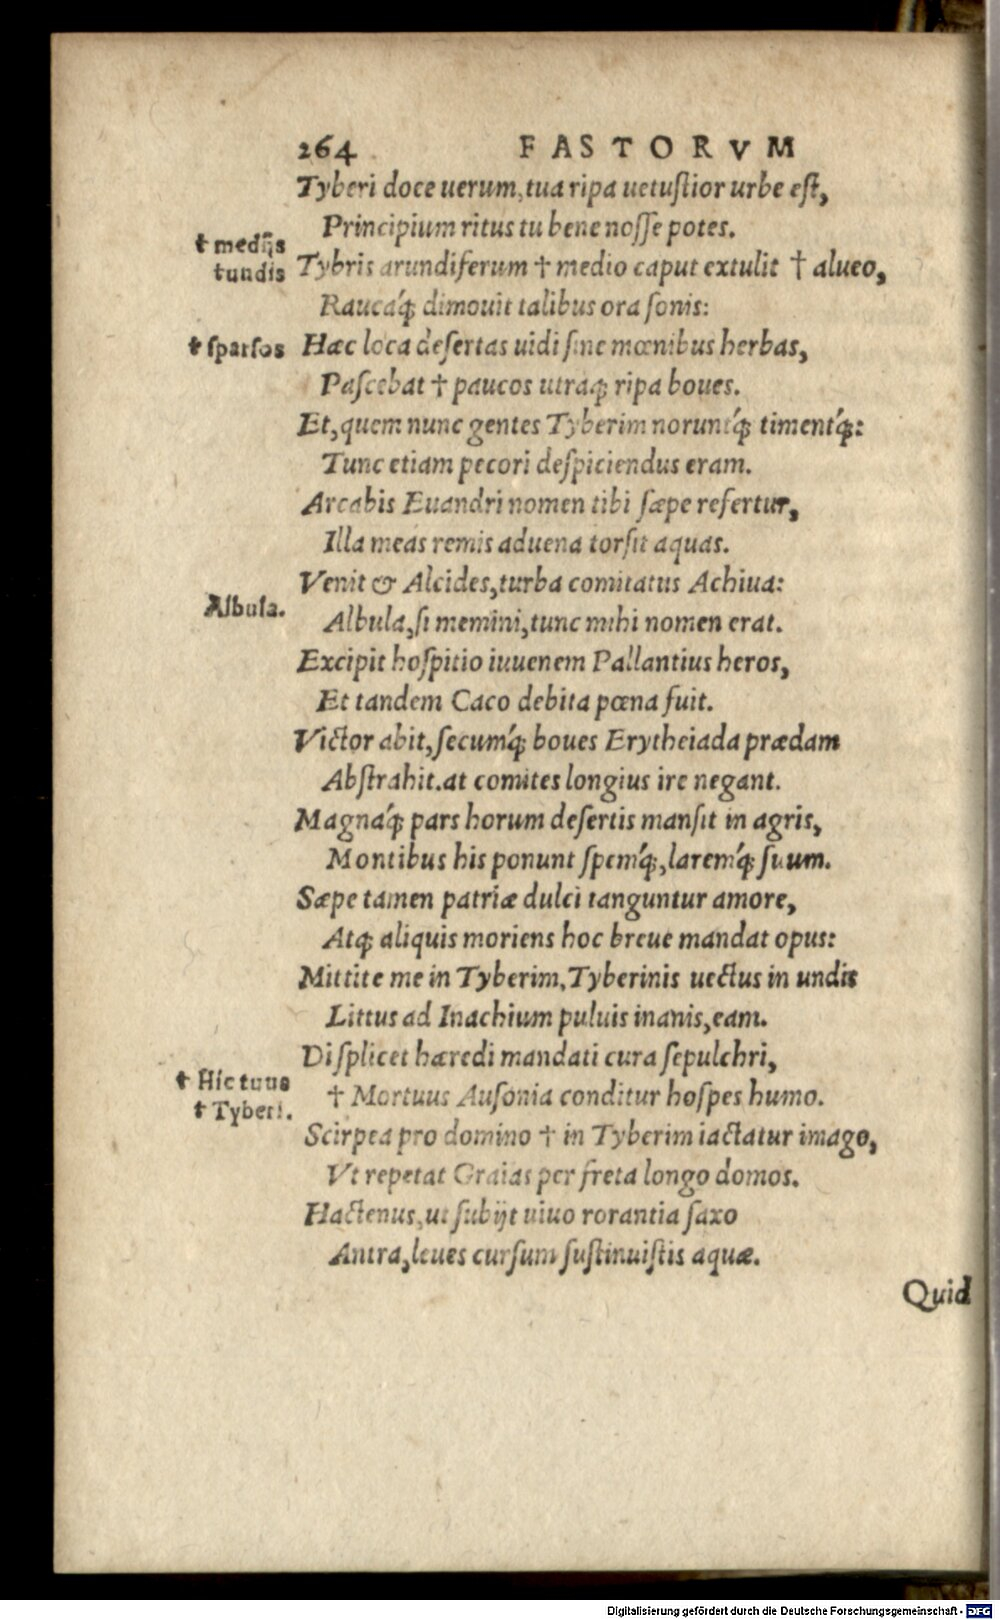 264 FASTORVM
Tyberi doce uerum, tua ripa uetuſtior urbe eſt,
Principium ritus tu bene noſſe potes.
† medijs
tundis
Tybris arundiferum † medio caput extulit † alueo,
Raucaq́; dimouit talibus ora ſonis:
† ſparſos
Hæc loca deſertas uidi ſine mœnibus herbas,
Paſcebat † paucos utraq; ripa boues.
Et, quem nunc gentes Tyberim noruntq́; timentq́;:
Tunc etiam pecori deſpiciendus eram.
Arcabis Euandri nomen tibi ſæpe refertur,
Illa meas remis aduena torſit aquas.
Venit & Alcides, turba comitatus Achiua:
Albula.
Albula, ſi memini, tunc mihi nomen erat.
Excipit hoſpitio iuuenem Pallantius heros,
Et tandem Caco debita pœna fuit.
Victor abit, ſecumq́; boues Erytheiada prædam
Abſtrahit. at comites longius ire negant.
Magnaq́; pars horum deſertis manſit in agris,
Montibus his ponunt ſpemq́;, laremq́; ſuum.
Sæpe tamen patriæ dulci tanguntur amore,
Atq; aliquis moriens hoc breue mandat opus:
Mittite me in Tyberim, Tyberinis uectus in undis
Littus ad Inachium puluis inanis, eam.
Diſplicet hæredi mandati cura ſepulchri,
† Hic tuus
† Tyberi.
† Mortuus Auſonia conditur hoſpes humo.
Scirpea pro domino † in Tyberim iactatur imago,
Vt repetat Graias per freta longo domos.
Hactenus, ut ſubijt uiuo rorantia ſaxo
Antra, leues curſum ſuſtinuiſtis aquæ.
Quid
Digitalisierung gefördert durch die Deutsche Forschungsgemeinschaft - DFG